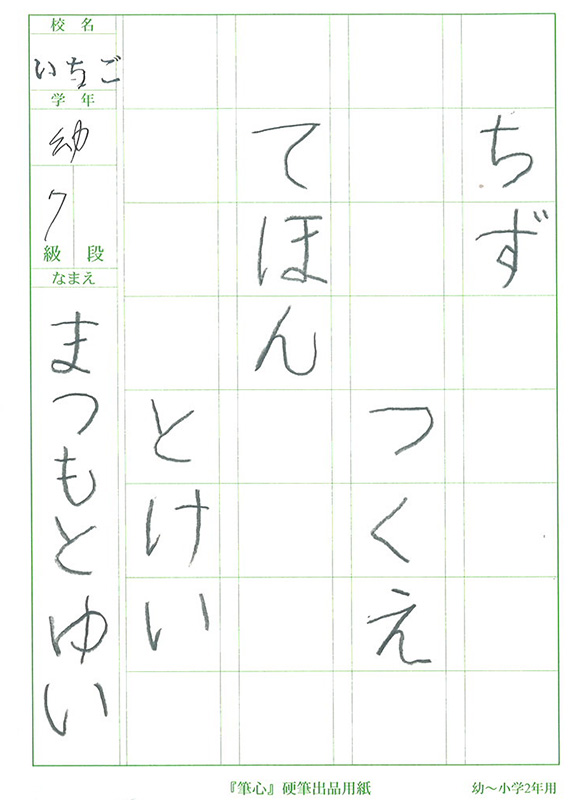 ちず
つくえ
てほん
とけい
校名
いちご
学年
幼
7
級 段
なまえ
まつもとゆい
『筆心』硬筆出品用紙
幼～小学2年用